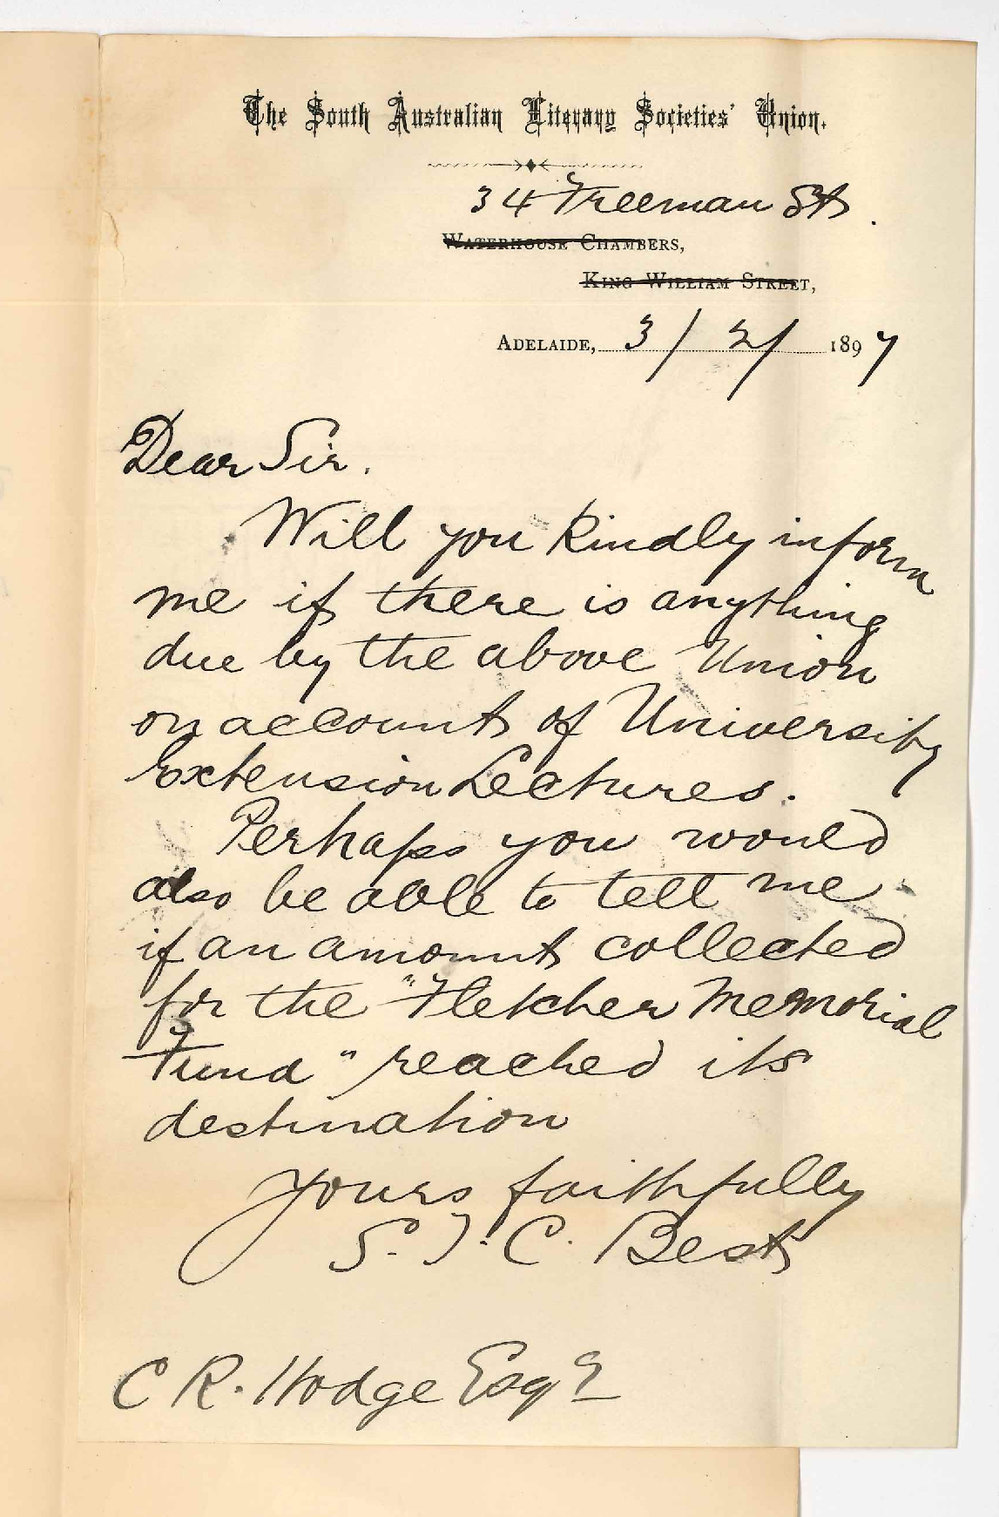 The South Australian Literary Societies' Union.
34 Freeman St.
Waterhouse Chambers,
King William Street,
Adelaide, 3/2/1897
Dear Sir.
Will you kindly inform
me if there is anything
due by the above Union
on account of University
Extension Lectures.
Perhaps you would
also be able to tell me
if an amount collected
for the "Fletcher Memorial
Fund" reached its
destination
Yours faithfully
S. J. C. Best
C R. Hodge Esqre